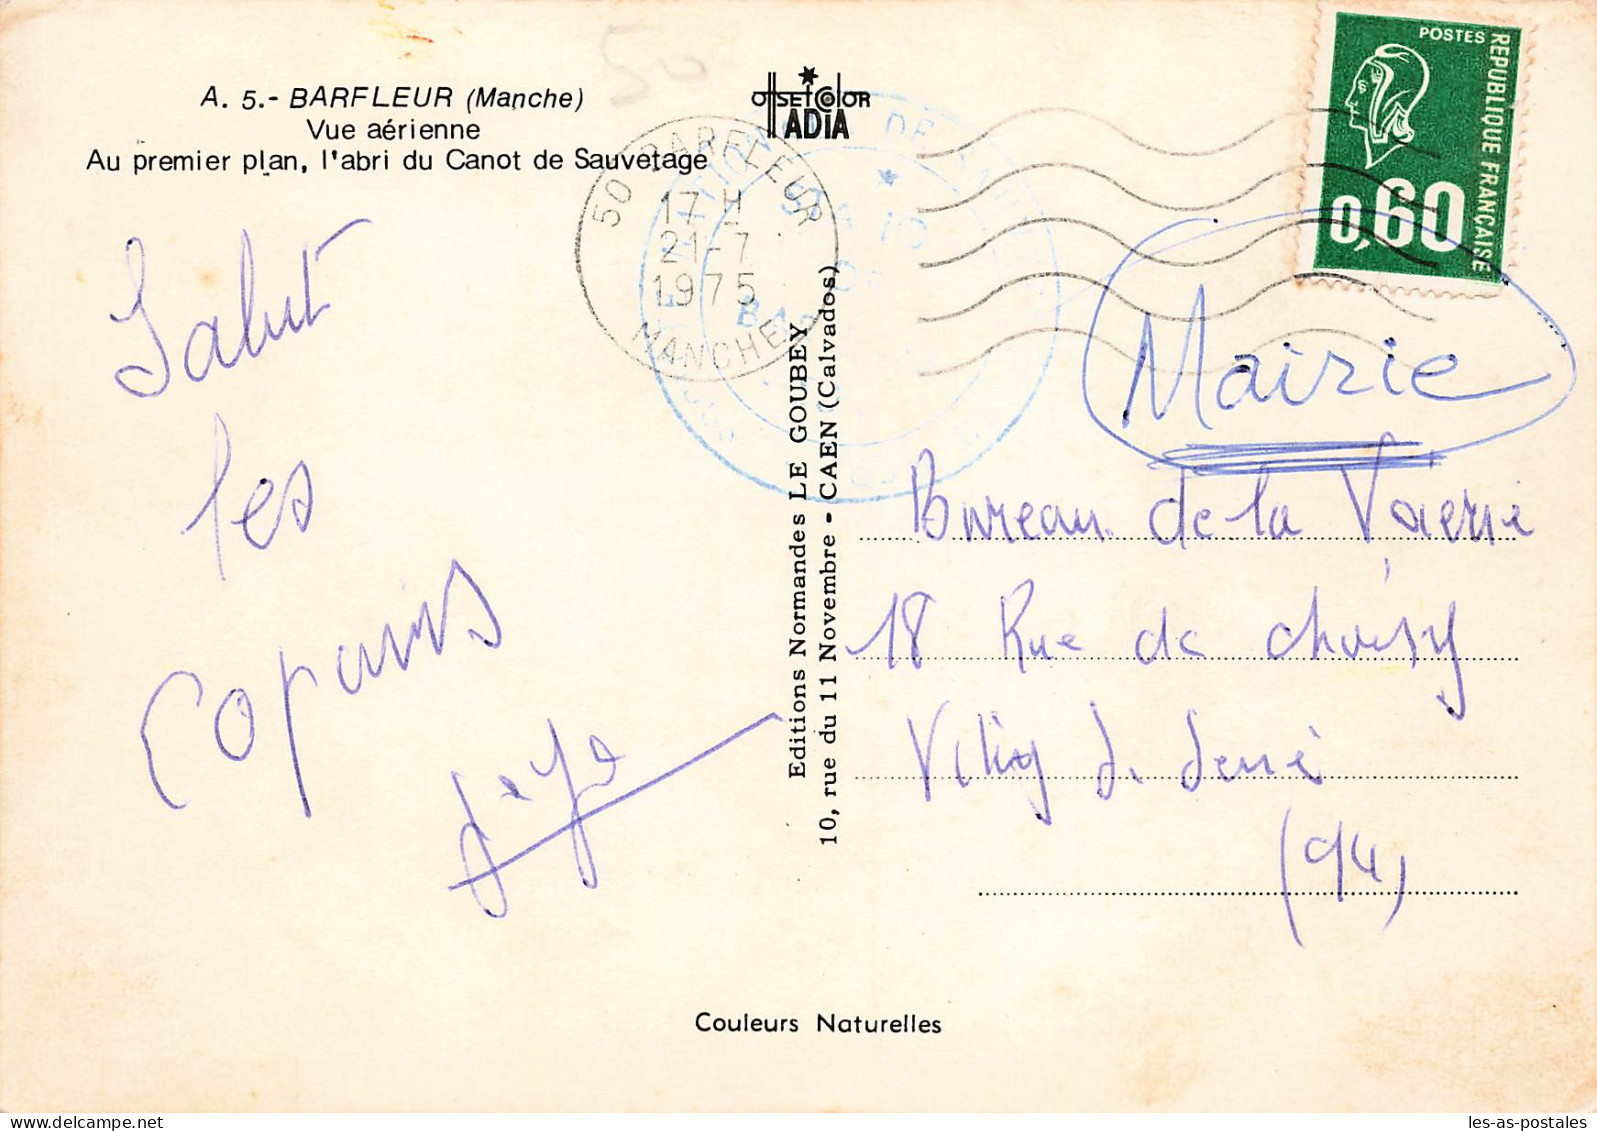 A. 5.- BARFLEUR (Manche)
Vue aérienne
Au premier plan, l'abri du Canot de Sauvetage
50
OFFSET COLOR
ADIA
50 BARFLEUR
17 H
21-7
1975
MANCHE
POSTES
REPUBLIQUE FRANÇAISE
0,60
Salut
les
copains
Editions Normandes LE GOUBEY
10, rue du 11 Novembre - CAEN (Calvados)
Mairie
Bureau de la
18 Rue de choisy
(94)
Couleurs Naturelles
les-as-postales